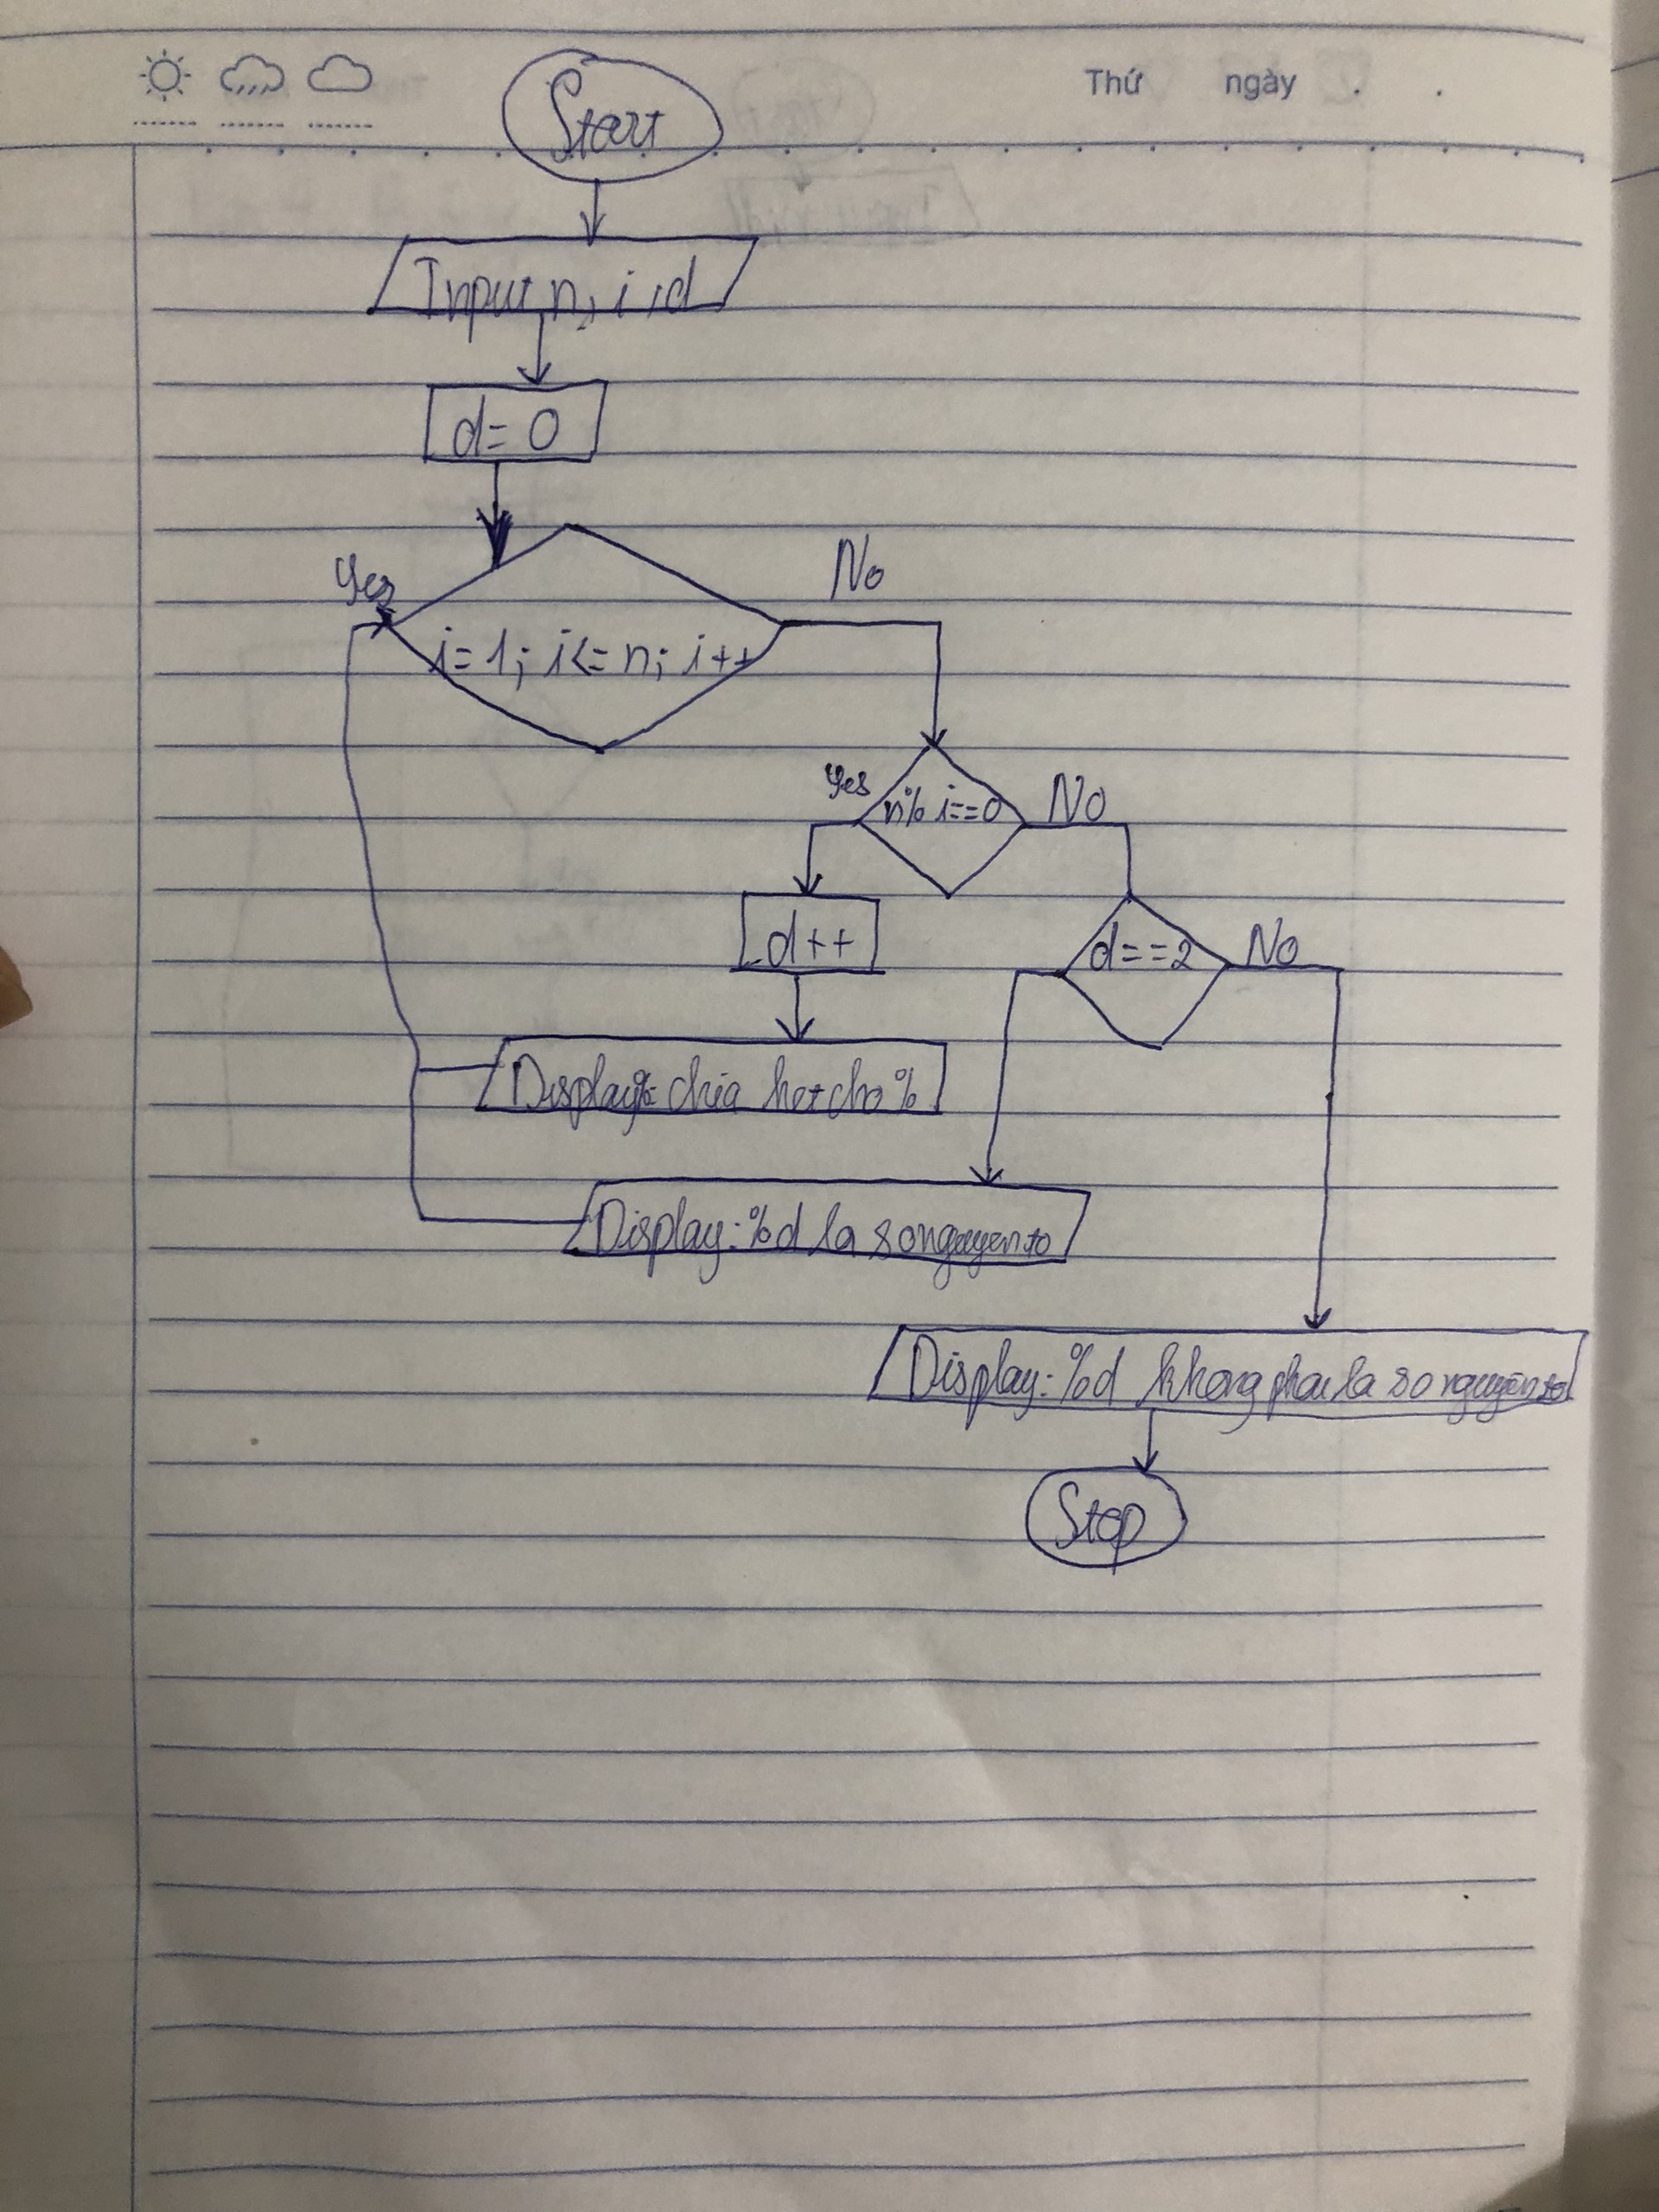 Thứ ngày . .
Start
Input n, i, d
d= 0
Yes
No
i=1; i<=n; i++
Yes
n% i==0
No
d++
d==2
No
Display chia het cho %
Display: %d la so nguyen to
Display: %d khong phai la so nguyen to
Stop